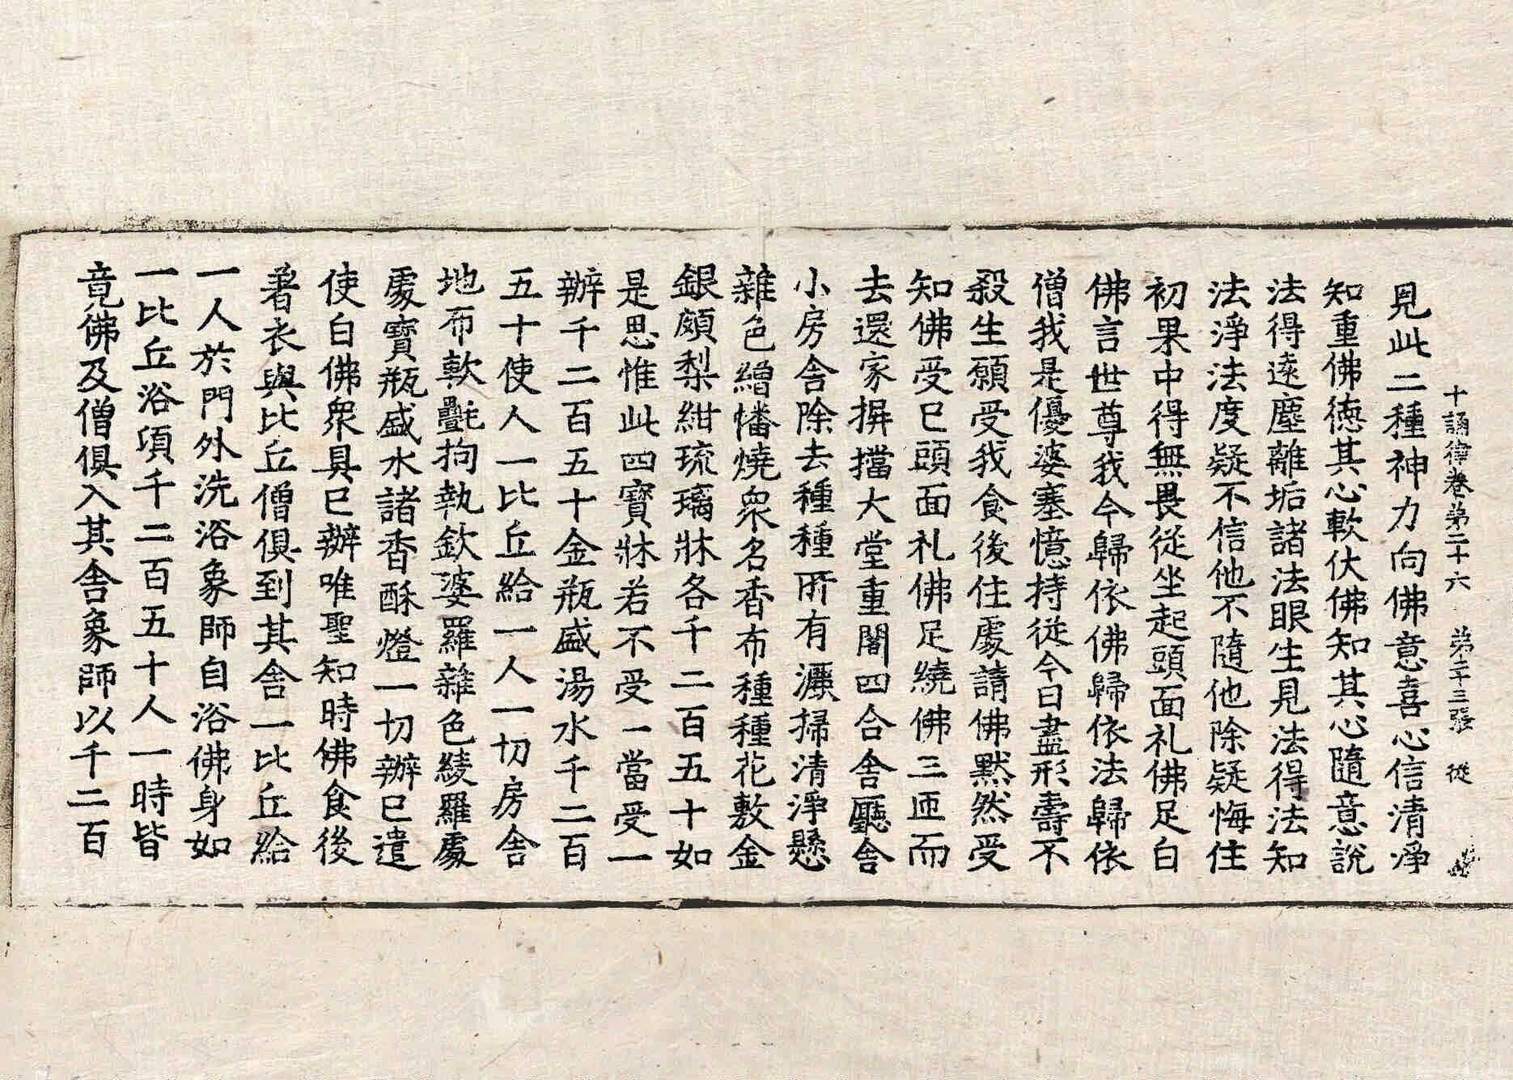 十誦律卷第二十六 第二十三張 從
見此二種神力向佛意喜心信清淨
知重佛德其心軟伏佛知其心隨意說
法得遠塵離垢諸法眼生見法得法知
法淨法度疑不信他不隨他除疑悔住
初果中得無畏從坐起頭面礼佛足白
佛言世尊我今歸依佛歸依法歸依
僧我是優婆塞憶持從今日盡形壽不
殺生願受我食後住處請佛默然受
知佛受已頭面礼佛足繞佛三匝而
去還家摒擋大堂重閣四合舍廳舍
小房舍除去種種所有灑掃清淨懸
雜色繒幡燒衆名香布種種花敷金
銀頗梨紺琉璃牀各千二百五十如
是思惟此四寶牀若不受一當受一
辦千二百五十金瓶盛湯水千二百
五十使人一比丘給一人一切房舍
地布軟㲲拘執欽婆羅雜色綾羅處
處寶瓶盛水諸香酥燈一切辦已遣
使白佛衆具已辦唯聖知時佛食後
著衣與比丘僧俱到其舍一比丘給
一人於門外洗浴象師自浴佛身如
一比丘浴頃千二百五十人一時皆
竟佛及僧俱入其舍象師以千二百